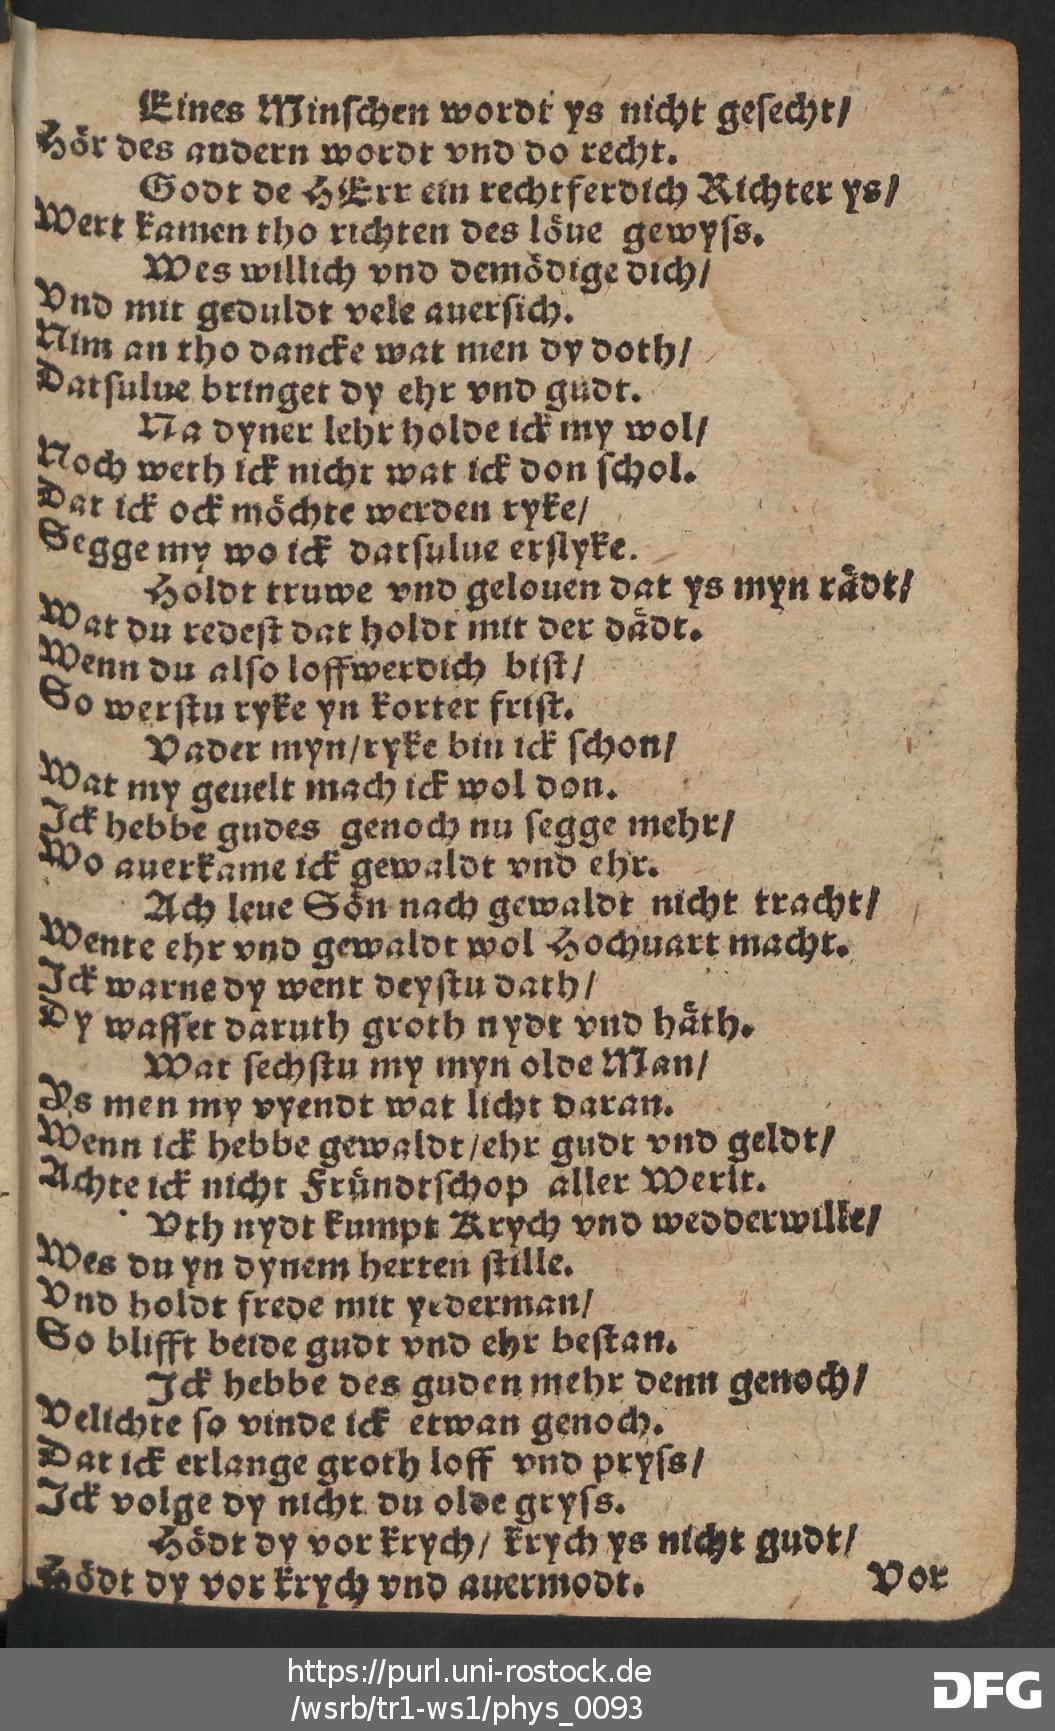 Eines Minſchen wordt ys nicht geſecht/
Hör des andern wordt vnd do recht.
Godt de HErr ein rechtferdich Richter ys/
Wert kamen tho richten des löue gewyſs.
Wes willich vnd demödige dich/
Vnd mit geduldt vele auerſich.
Nim an tho dancke wat men dy doth/
Datſulue bringet dy ehr vnd gudt.
Na dyner lehr holde ick my wol/
Noch weth ick nicht wat ick don ſchol.
Dat ick ock möchte werden ryke/
Segge my wo ick datſulue erſlyke.
Holdt truwe vnd gelouen dat ys myn rädt/
Wat du redeſt dat holdt mit der dädt.
Wenn du alſo loffwerdich biſt/
So werſtu ryke yn korter friſt.
Vader myn/ryke bin ick ſchon/
Wat my geuelt mach ick wol don.
Ick hebbe gudes genoch nu ſegge mehr/
Wo auerkame ick gewaldt vnd ehr.
Ach leue Sön nach gewaldt nicht tracht/
Wente ehr vnd gewaldt wol Hochuart macht.
Ick warne dy went deyſtu dath/
Dy waſſet daruth groth nydt vnd häth.
Wat ſechſtu my myn olde Man/
Ys men my vyendt wat licht daran.
Wenn ick hebbe gewaldt/ehr gudt vnd geldt/
Achte ick nicht Fründtſchop aller Werlt.
Vth nydt kumpt Krych vnd wedderwille/
Wes du yn dynem herten ſtille.
Vnd holdt frede mit yederman/
So blifft beide gudt vnd ehr beſtan.
Ick hebbe des guden mehr denn genoch/
Velichte ſo vinde ick etwan genoch.
Dat ick erlange groth loff vnd pryſs/
Ick volge dy nicht du olde gryſs.
Hödt dy vor krych/ krych ys nicht gudt/
Hödt dy vor krych vnd auermodt.
Vor
https://purl.uni-rostock.de
/wsrb/tr1-ws1/phys_0093
DFG